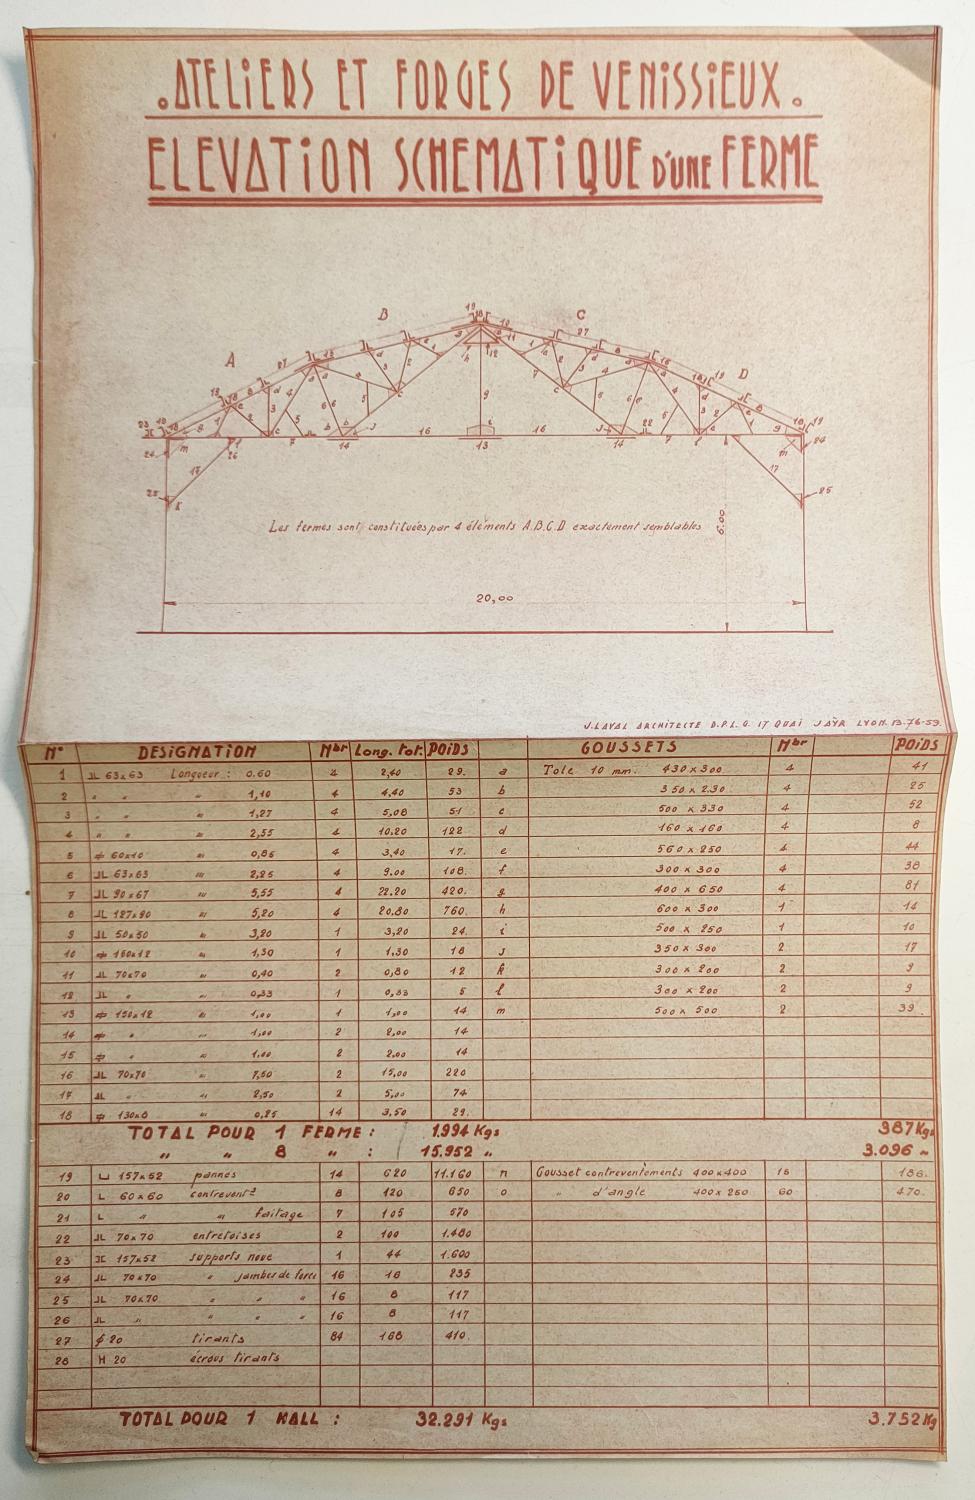 ATELIERS ET FORGES DE VENISSIEUX
ELEVATION SCHEMATIQUE D'UNE FERME
A B C D
Les fermes sont constituées par 4 éléments A.B.C.D exactement semblables
6,00
20,00
J. LAVAL ARCHITECTE D.P.L.G. 17 QUAI JAŸR LYON.B.76-59.
N° DESIGNATION Nbr Long. tot. POIDS GOUSSETS Nbr POIDS
1 JL 63x63 Longueur : 0.60 4 2,40 29. a Tole 10 mm. 430x300 4 41
2 " " " 1,10 4 4,40 53 b 350 x 230 4 25
3 " " " 1,27 4 5,08 51 c 500 x 330 4 52
4 " " " 2,55 4 10,20 122 d 160 x 160 4 8
5 60x10 " 0,85 4 3,40 17. e 560 x 250 4 44
6 JL 63x63 " 2,25 4 9.00 108. f 300 x 300 4 38
7 JL 90x67 " 5,55 4 22.20 420. g 400 x 650 4 81
8 JL 127x90 " 5,20 4 20.80 760. h 600 x 300 1 14
9 JL 50x50 " 3,20 1 3,20 24. i 500 x 250 1 10
10 180x12 " 1,30 1 1,30 18 j 350 x 300 2 17
11 JL 70x70 " 0,40 2 0,80 12 k 300 x 200 2 9
12 JL " " 0,33 1 0,33 5 l 300 x 200 2 9
13 150x12 " 1,00 1 1,00 14 m 500 x 500 2 39
14 " " 1,00 2 2,00 14
15 " " 1.00 2 2,00 14
16 JL 70x70 " 7,50 2 15,00 220
17 JL " " 2,50 2 5,00 74
18 130x8 " 0,25 14 3,50 29.
TOTAL POUR 1 FERME : 1.994 Kgs 387 Kgs
" " 8 " : 15.952 " 3.096 "
19 157x52 pannes 14 620 11.160 n Gousset contreventements 400x400 15 186.
20 L 60x60 contrevent.ᵗ 8 120 650 o " d'angle 400x250 60 470.
21 L " " faitage 7 105 570
22 JL 70x70 entretoises 2 100 1.480
23 157x52 supports noue 1 44 1.600
24 JL 70x70 " jambes de force 16 16 235
25 JL 70x70 " " " 16 8 117
26 JL " " " " 16 8 117
27 ϕ 20 tirants 84 168 410.
28 H 20 écrous tirants
TOTAL POUR 1 HALL : 32.291 Kgs 3.752 Kg